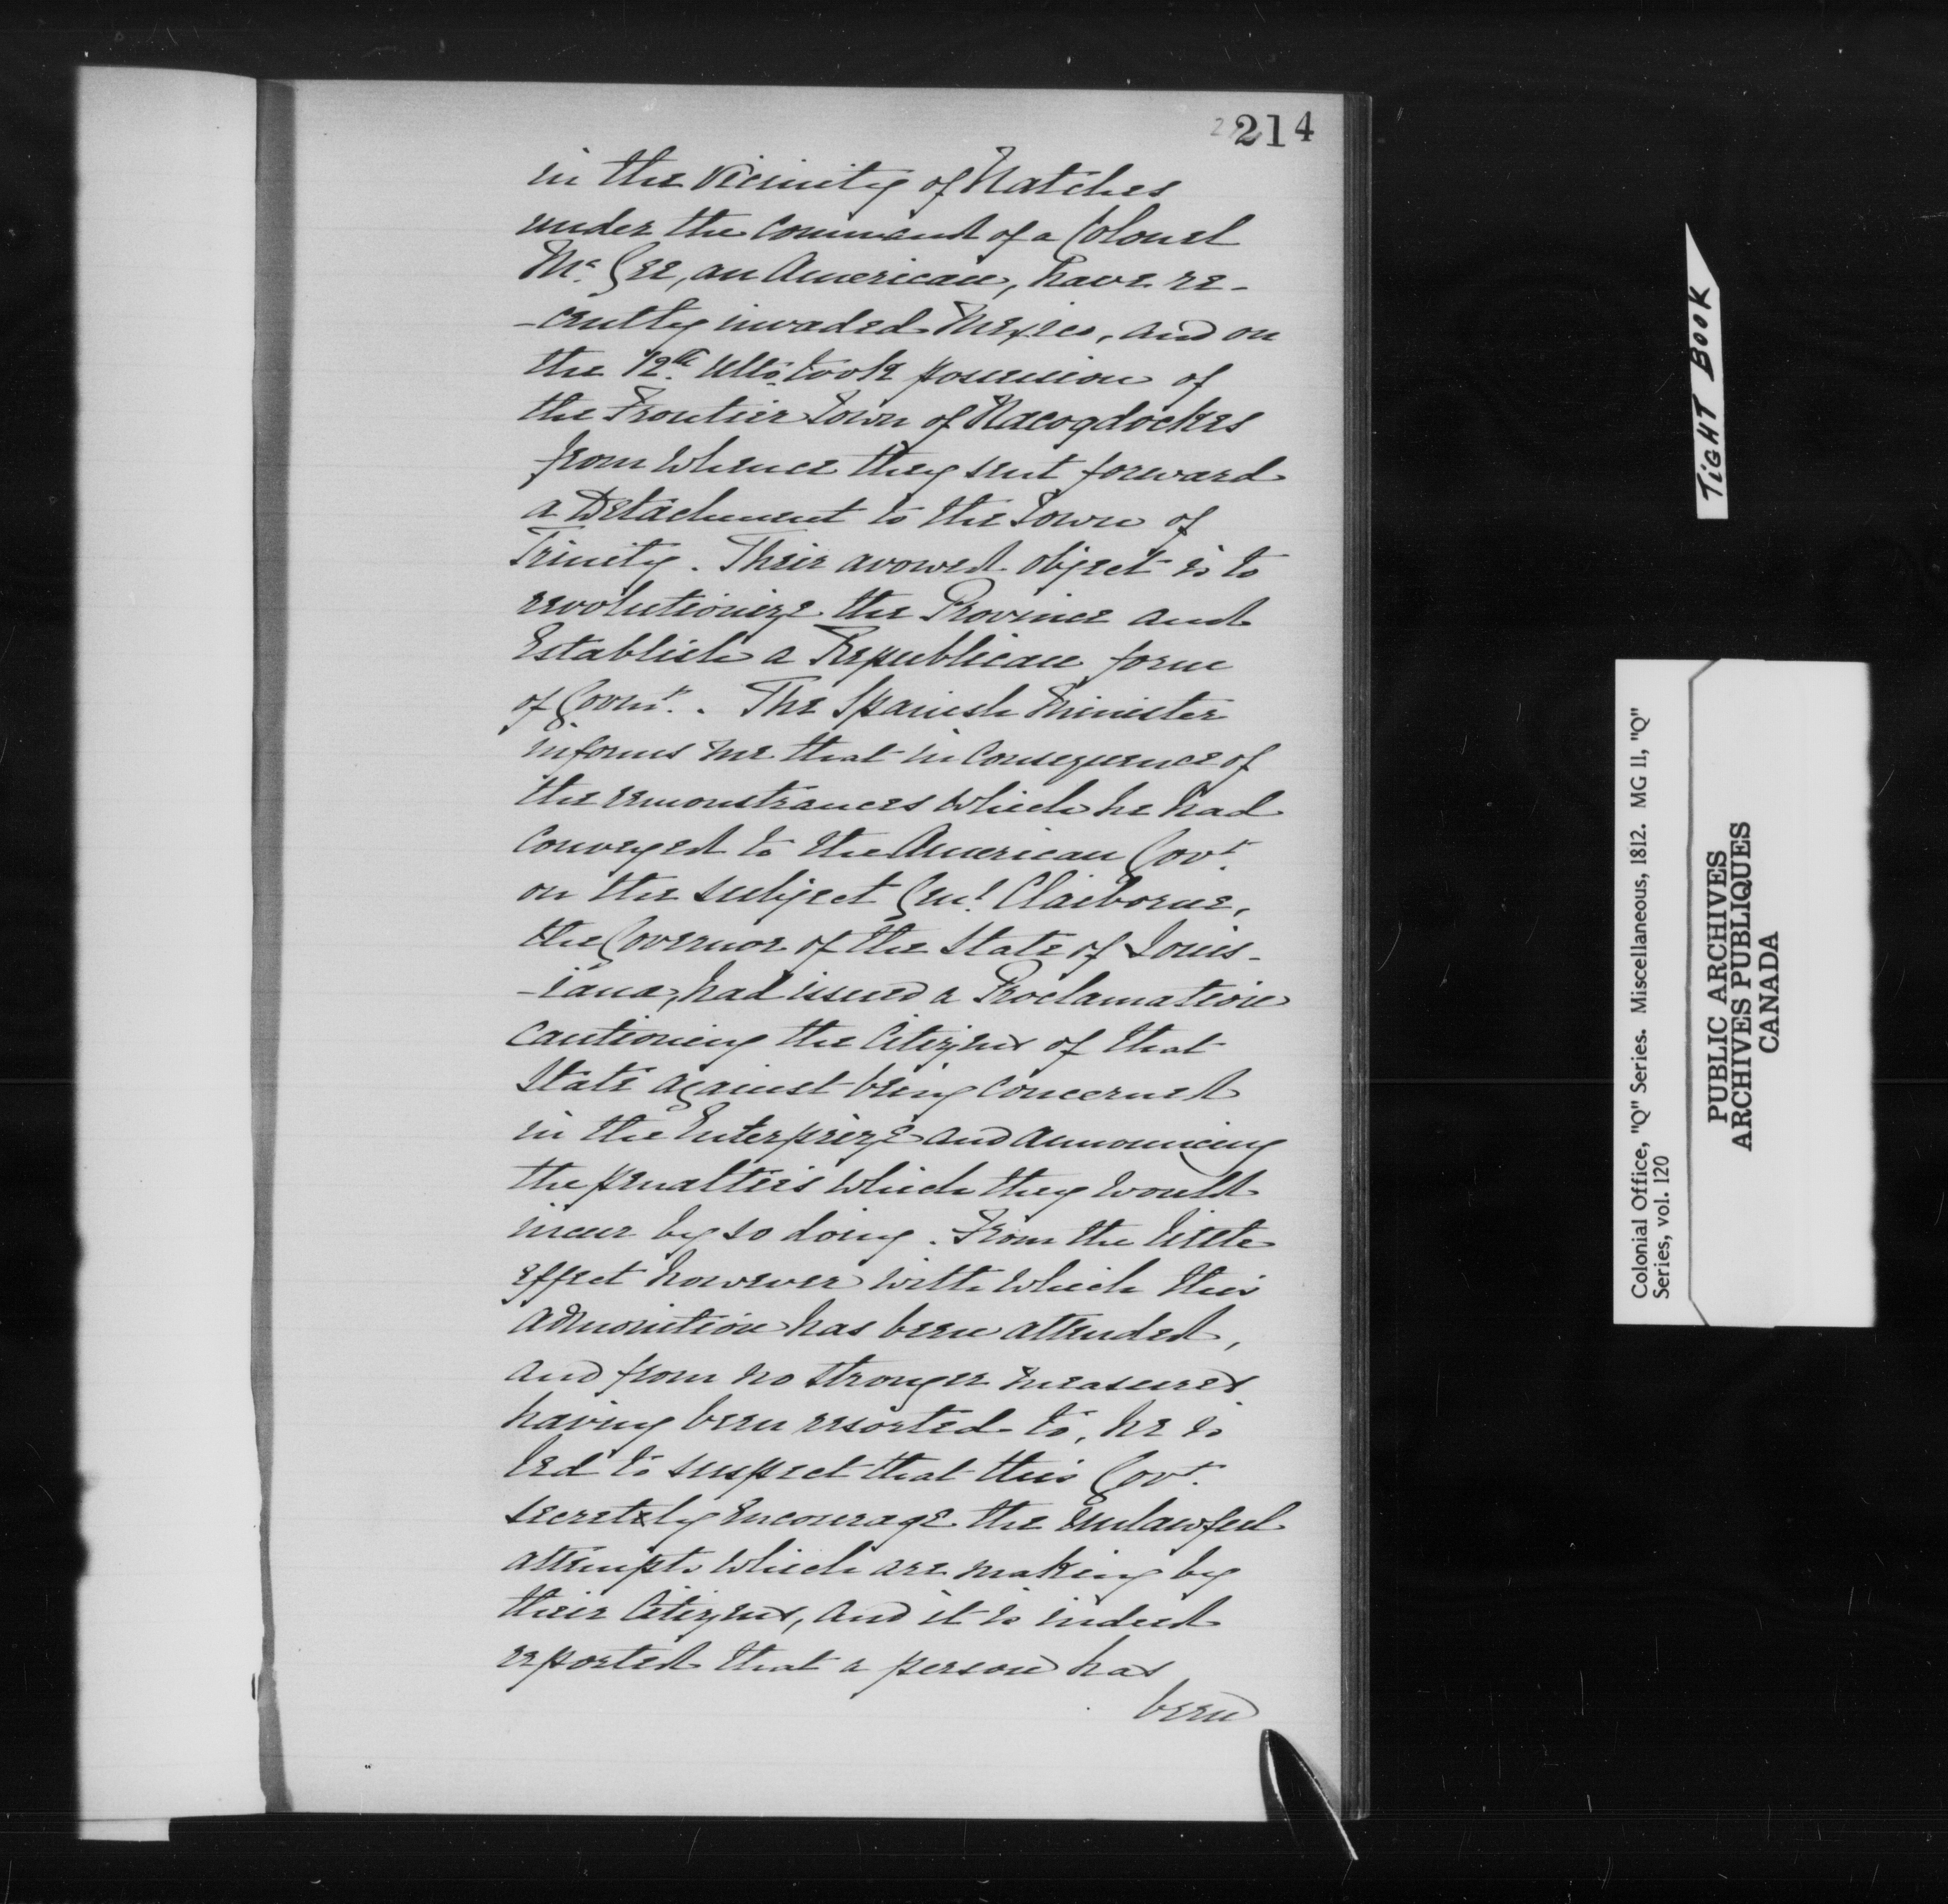 214
in the vicinity of Natches
under the command of a Colonel
Mc. Gee, an American, have re-
-cently invaded Mexico, and on
the 12th. Ulto. took possession of
the Frontier Town of Nacogdockes
from whence they sent forward
a Detachment to the Town of
Trinity. Their avowed object is to
revolutionize the Province and
Establish a Republican form
of Govnt. . The Spanish Minister
informs me that in consequence of
the remonstrances which he had
conveyed to the American Govt.
on the subject Genl. Claiborne,
the Governor of the State of Louis-
-iana, had issued a Proclamation
cautioning the Citizens of that
State against being concerned
in the Enterprize and announcing
the penalties which they would
incur by so doing. From the little
effect however with which this
admonition has been attended,
and from no stronger measures
having been resorted to, he is
led to suspect that this Govt.
secretely encourage the unlawful
attempts which are making by
their Citizens, and it is indeed
reported that a person has
been
TiGHT BOOK
Colonial Office, "Q" Series. Miscellaneous, 1812. MG 11, "Q"
Series, vol. 120
PUBLIC ARCHIVES
ARCHIVES PUBLIQUES
CANADA